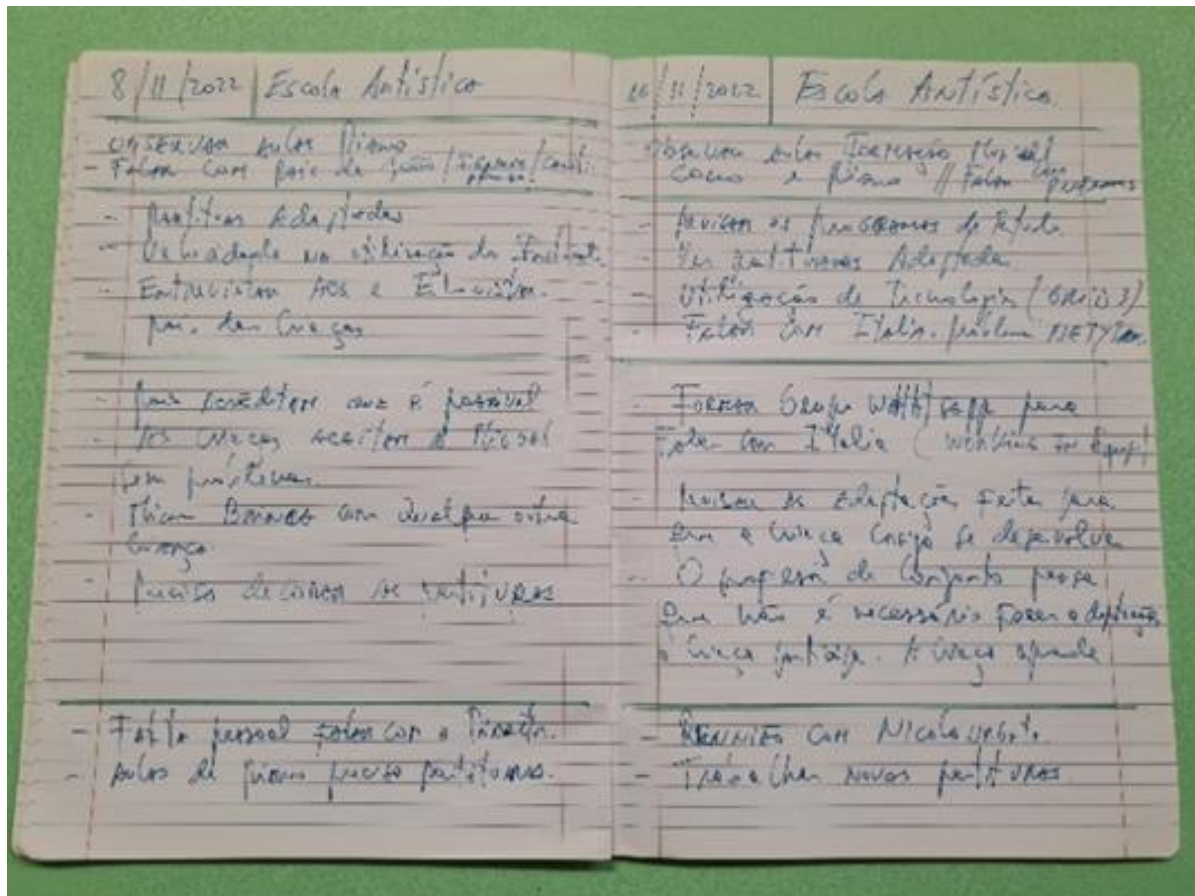 8/11/2022 Escola Artística
OBSERVAR Aulas Piano
- Falar com pais de
- Partituras Adaptadas
- na utilização do
- Entrevistar AOs e
pais das Crianças
- pais acreditam que é possível
- As crianças aceitam o
sem problemas
- Brincar com qualquer outra
criança
- Preciso de as partituras
- Falta pessoal Falar com a
- Aulas de piano preciso partituras.
16/11/2022 Escola Artística
Observar aulas Formação Musical
Coro e piano // Falar com professores
- Revisar os programas de estudo
- Ver partituras Adaptadas
- Utilização de Tecnologia
- Falar com Italia. problema
- Formar Grupo Whatsapp para
Falar com Italia (working in
- Revisar as adaptação feita para
que a criança se desenvolva
- O professor de Conjunto pensa
que não é necessário fazer adaptação
a criança participa. A criança aprende
- REUNIÃO COM Nicola
- Trabalhar novas partituras